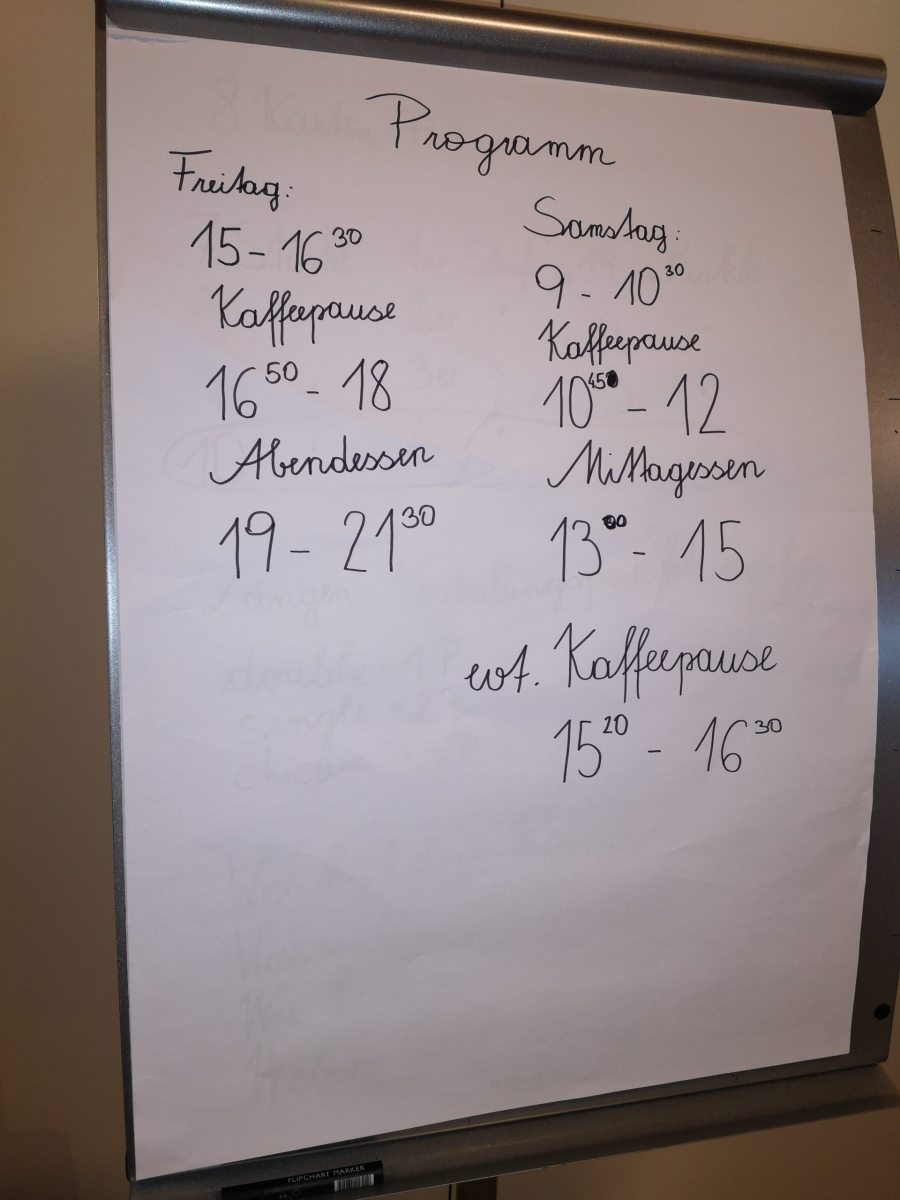 Programm
Freitag:
15 - 16 30
Kaffeepause
16 50 - 18
Abendessen
19 - 21 30
Samstag:
9 - 10 30
Kaffeepause
10 45 - 12
Mittagessen
13 00 - 15
evt. Kaffeepause
15 20 - 16 30
FLIPCHART MARKER